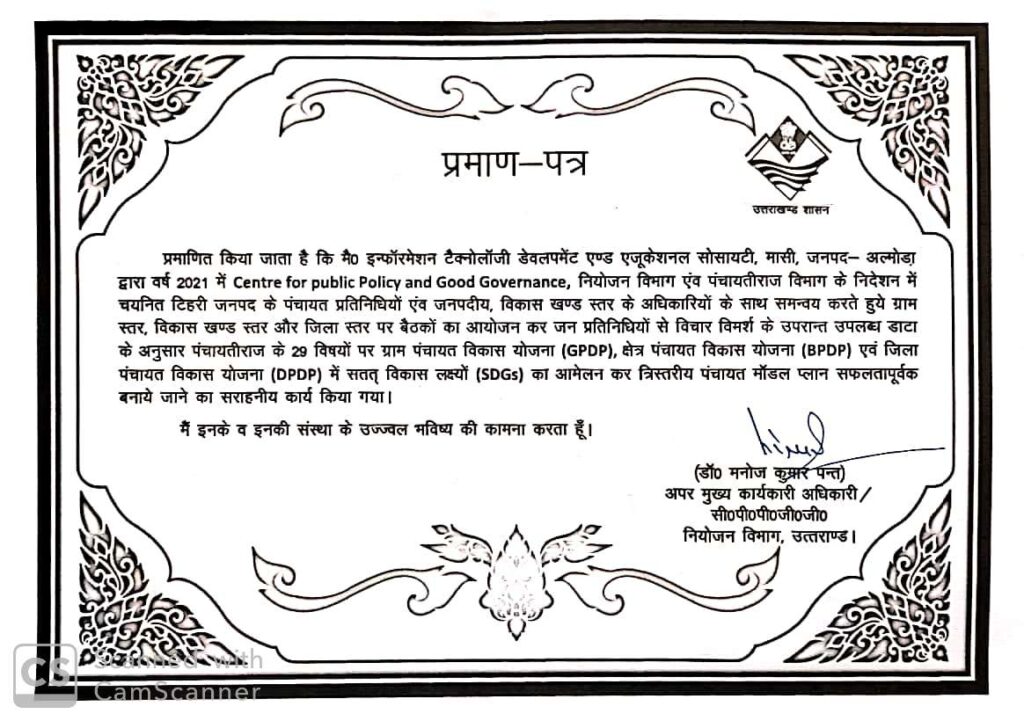 प्रमाण–पत्र
उत्तराखण्ड शासन
प्रमाणित किया जाता है कि मै0 इन्फॉरमेशन टैक्नोलॉजी डेवलपमेंट एण्ड एजूकेशनल सोसायटी, मासी, जनपद– अल्मोडा़
द्वारा वर्ष 2021 में Centre for public Policy and Good Governance, नियोजन विभाग एंव पंचायतीराज विभाग के निदेशन में
चयनित टिहरी जनपद के पंचायत प्रतिनिधियों एंव जनपदीय, विकास खण्ड स्तर के अधिकारियों के साथ समन्वय करते हुये ग्राम
स्तर, विकास खण्ड स्तर और जिला स्तर पर बैठकों का आयोजन कर जन प्रतिनिधियों से विचार विमर्श के उपरान्त उपलब्ध डाटा
के अनुसार पंचायतीराज के 29 विषयों पर ग्राम पंचायत विकास योजना (GPDP), क्षेत्र पंचायत विकास योजना (BPDP) एवं जिला
पंचायत विकास योजना (DPDP) में सतत् विकास लक्ष्यों (SDGs) का आमेलन कर त्रिस्तरीय पंचायत मॉडल प्लान सफलतापूर्वक
बनाये जाने का सराहनीय कार्य किया गया।
मैं इनके व इनकी संस्था के उज्ज्वल भविष्य की कामना करता हूँ।
(डॉ0 मनोज कुमार पन्त)
अपर मुख्य कार्यकारी अधिकारी/
सी0पी0पी0जी0जी0
नियोजन विभाग, उत्तराण्ड।
CS Scanned with
CamScanner